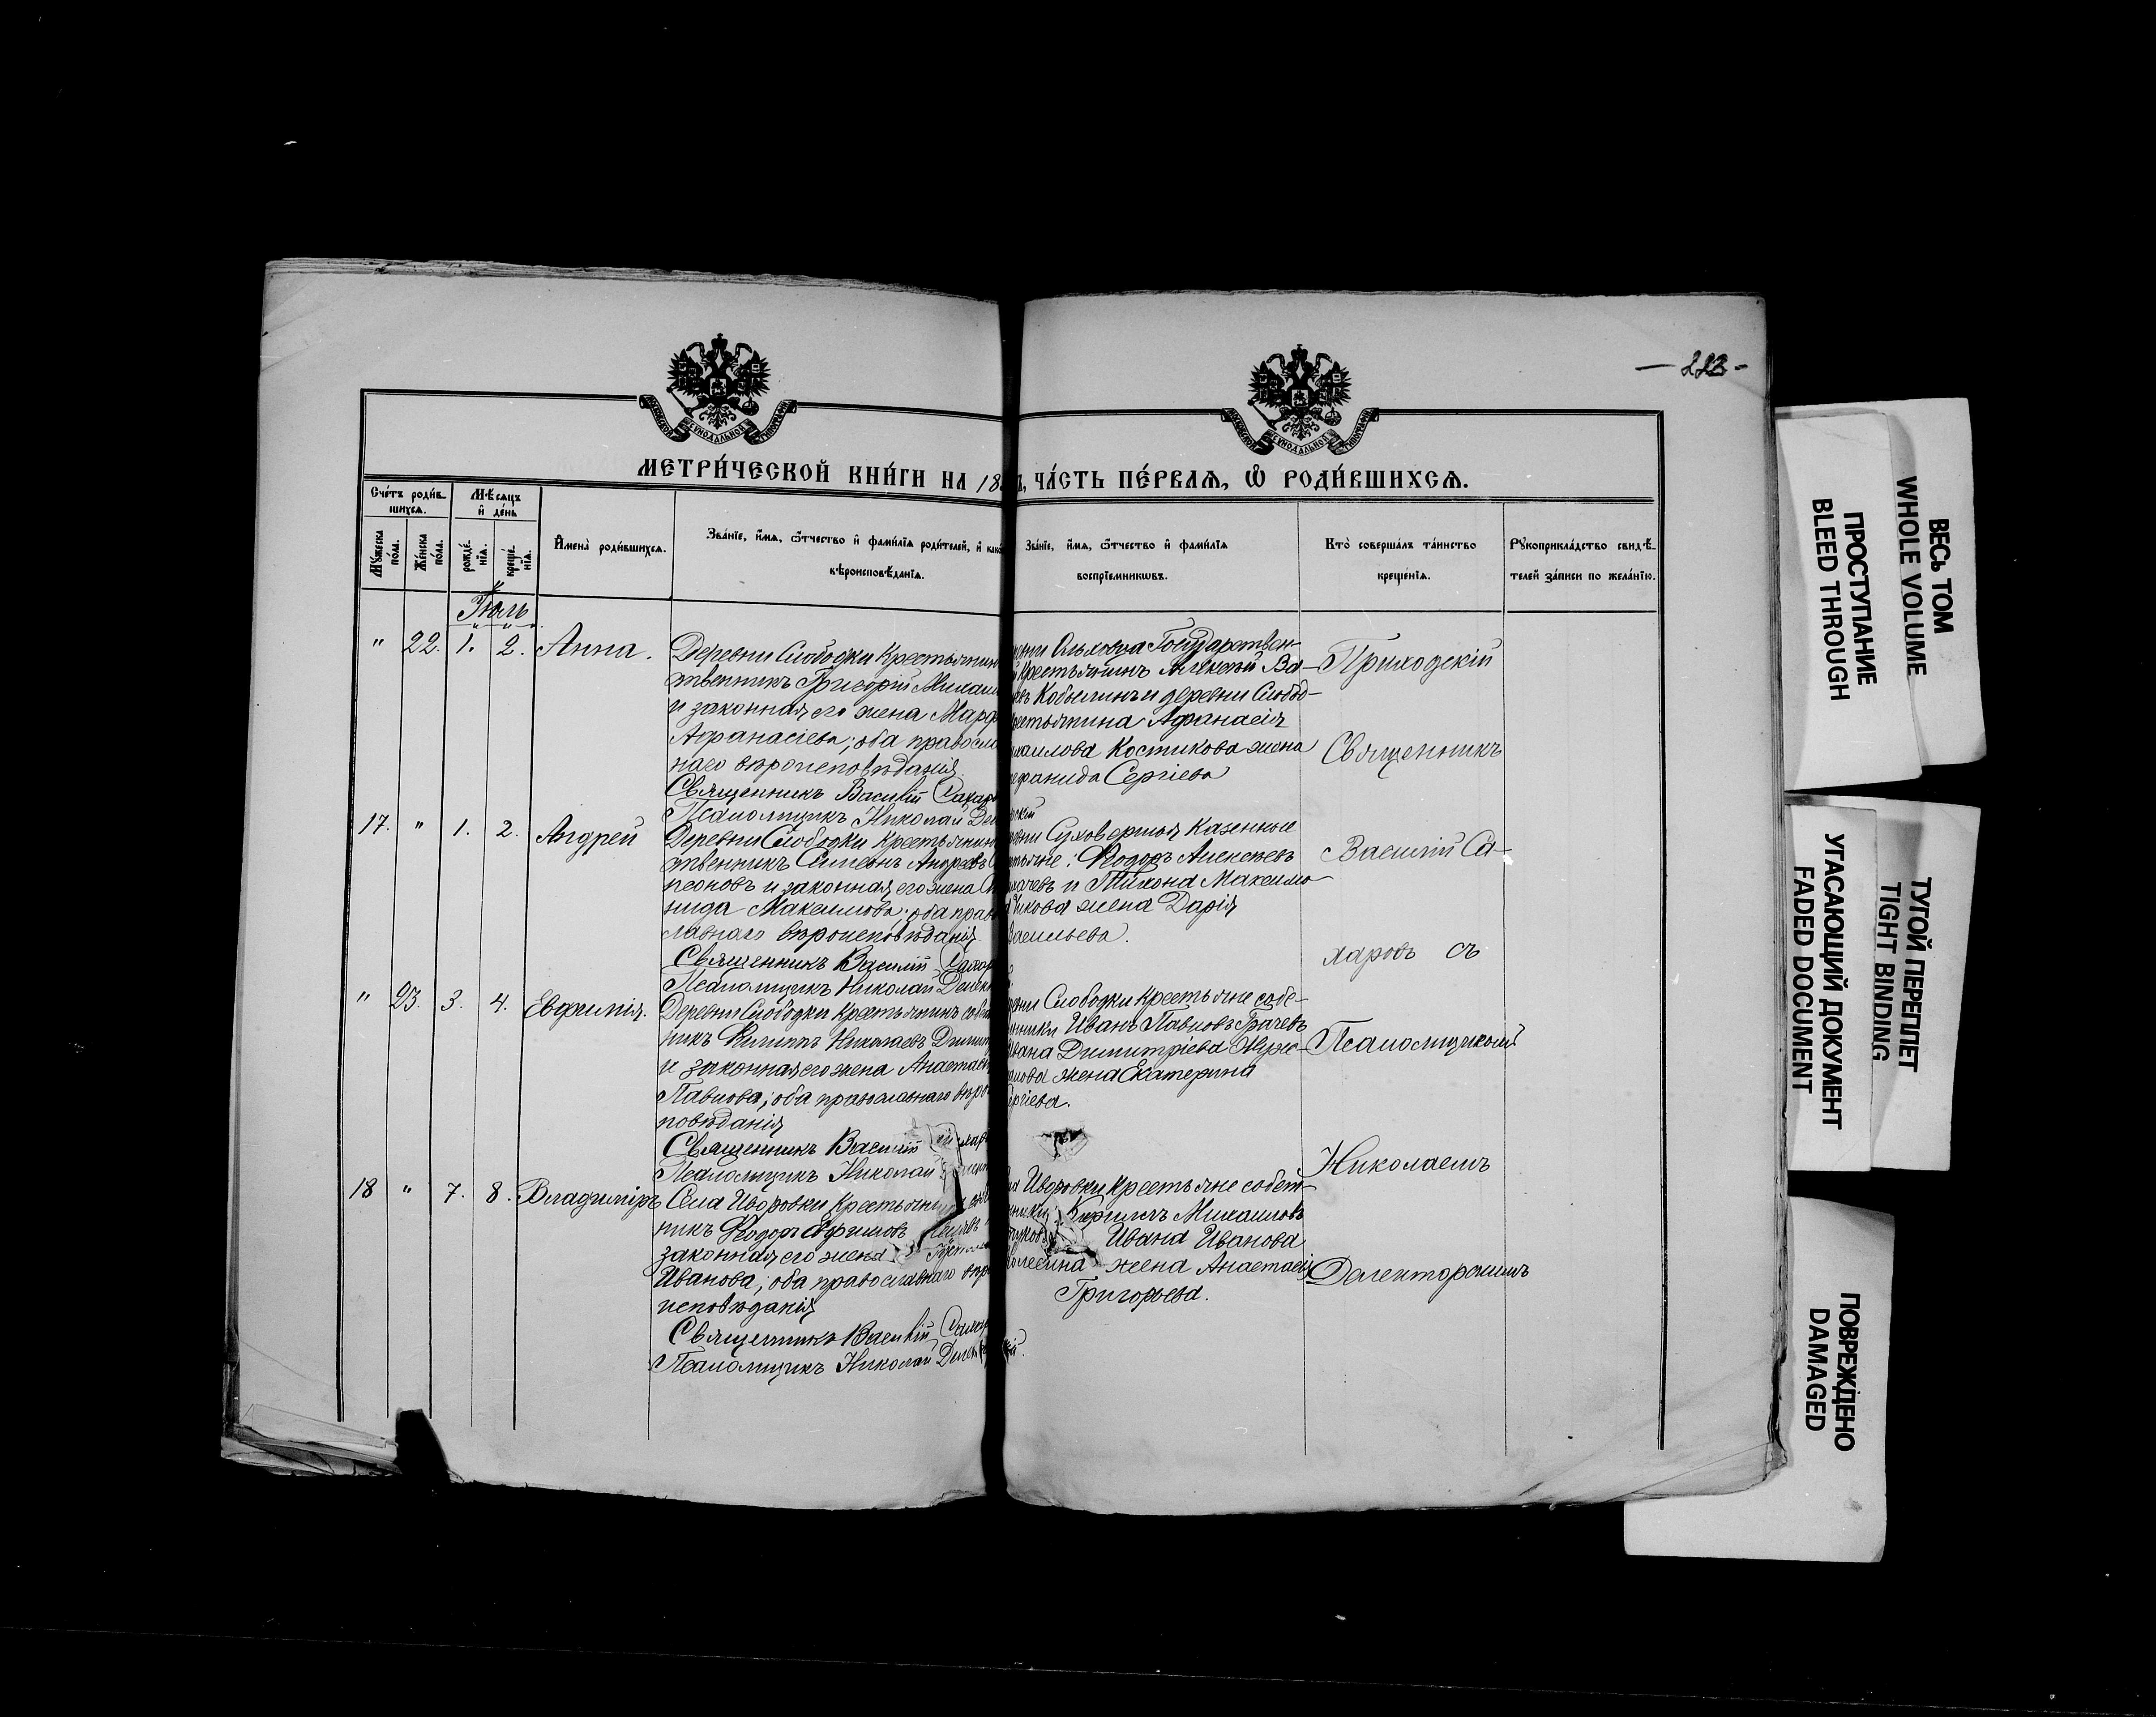 — 223 -
МЕТРИ́ЧЕСКОЙ КНИ́ГИ НА 18
Ъ, ЧА́СТЬ ПЕ́РВАѦ, Ѡ РОДИ́ВШИХСѦ.
Сче́тъ роди́в-
шихсѧ.
Мѣ́сѧцъ
и҆ де́нь
Мꙋ́жеска по́ла.
Же́нска по́ла.
рожде́нїѧ.
креще́нїѧ.
И҆мена̀ роди́вшихсѧ.
Зва́нїе, и҆́мѧ, ѻ҆́тчество и҆ фами́лїѧ роди́телей, и҆ како
вѣроисповѣ́данїѧ.
Зва́нїе, и҆́мѧ, ѻ҆́тчество и҆ фами́лїѧ
воспрїе́мникѡвъ.
Кто̀ соверша́лъ та́инство
креще́нїѧ.
Рꙋкоприкла́дство свидѣ́-
телей за́писи по жела́нїю.
Іюль
" 22. 1. 2. Анна.
Деревни Слободки Крестьянин
ственникъ Григорій Михаил
и законная его жена Марф
Афанасіева; оба правосла
наго вѣроисповѣданія.
Священникъ Василій Сахар
Псаломщикъ Николай Дел
Ольховца Государствен-
Крестьянинъ Алексѣй Ва-
Кобылинъ и деревни Слобо-
рестьянина Афанасія
хаилова Костикова жена
ефанида Сергіева
17. " 1. 2. Андрей
Деревни Слободки крестьянин
ственникъ Симеонъ Андреевъ
пеоновъ и законная его жена
нида Максимова; оба прав
лавнаго вѣроисповѣданія.
Священникъ Василій Сахар
Псаломщикъ Николай Делек
Суховерхова Казенные
тьяне: Ѳеодоръ Алексѣевъ
рачевъ и Тихона Максимо
икова жена Дарія
Васильева.
" 23. 3. 4. Евфимія.
Деревни Слободки Крестьянинъ собст
никъ Филиппъ Николаевъ Димит
и законная его жена Анастасі
Павлова; оба православнаго вѣро
повѣданія
Священникъ Василій Сахар
Псаломщикъ Николай
Слободки Крестьяне собс-
нники Иванъ Павловъ Грачевъ
Ивана Димитріева
жена Екатерина
ргіева.
18 " 7. 8. Владиміръ
Села Иворовки Крестьянин
никъ Ѳеодоръ Ефимовъ
законная его жена
Иванова; оба православнаго вѣро
исповѣданія
Священникъ Василій Сахар
Псаломщикъ Николай Делек
Иворовки крестьяне собст-
нники: Кириллъ Михаиловъ
Ивана Иванова
Колесина жена Анастасія
Григорьева.
Приходскій
Священникъ
Василій Са-
харовъ съ
Псаломщикомъ
Николаемъ
Делекторскимъ
ВЕСЬ ТОМ
WHOLE VOLUME
ПРОСТУПАНИЕ
BLEED THROUGH
ТУГОЙ ПЕРЕПЛЕТ
TIGHT BINDING
УГАСАЮЩИЙ ДОКУМЕНТ
FADED DOCUMENT
ПОВРЕЖДЕНО
DAMAGED